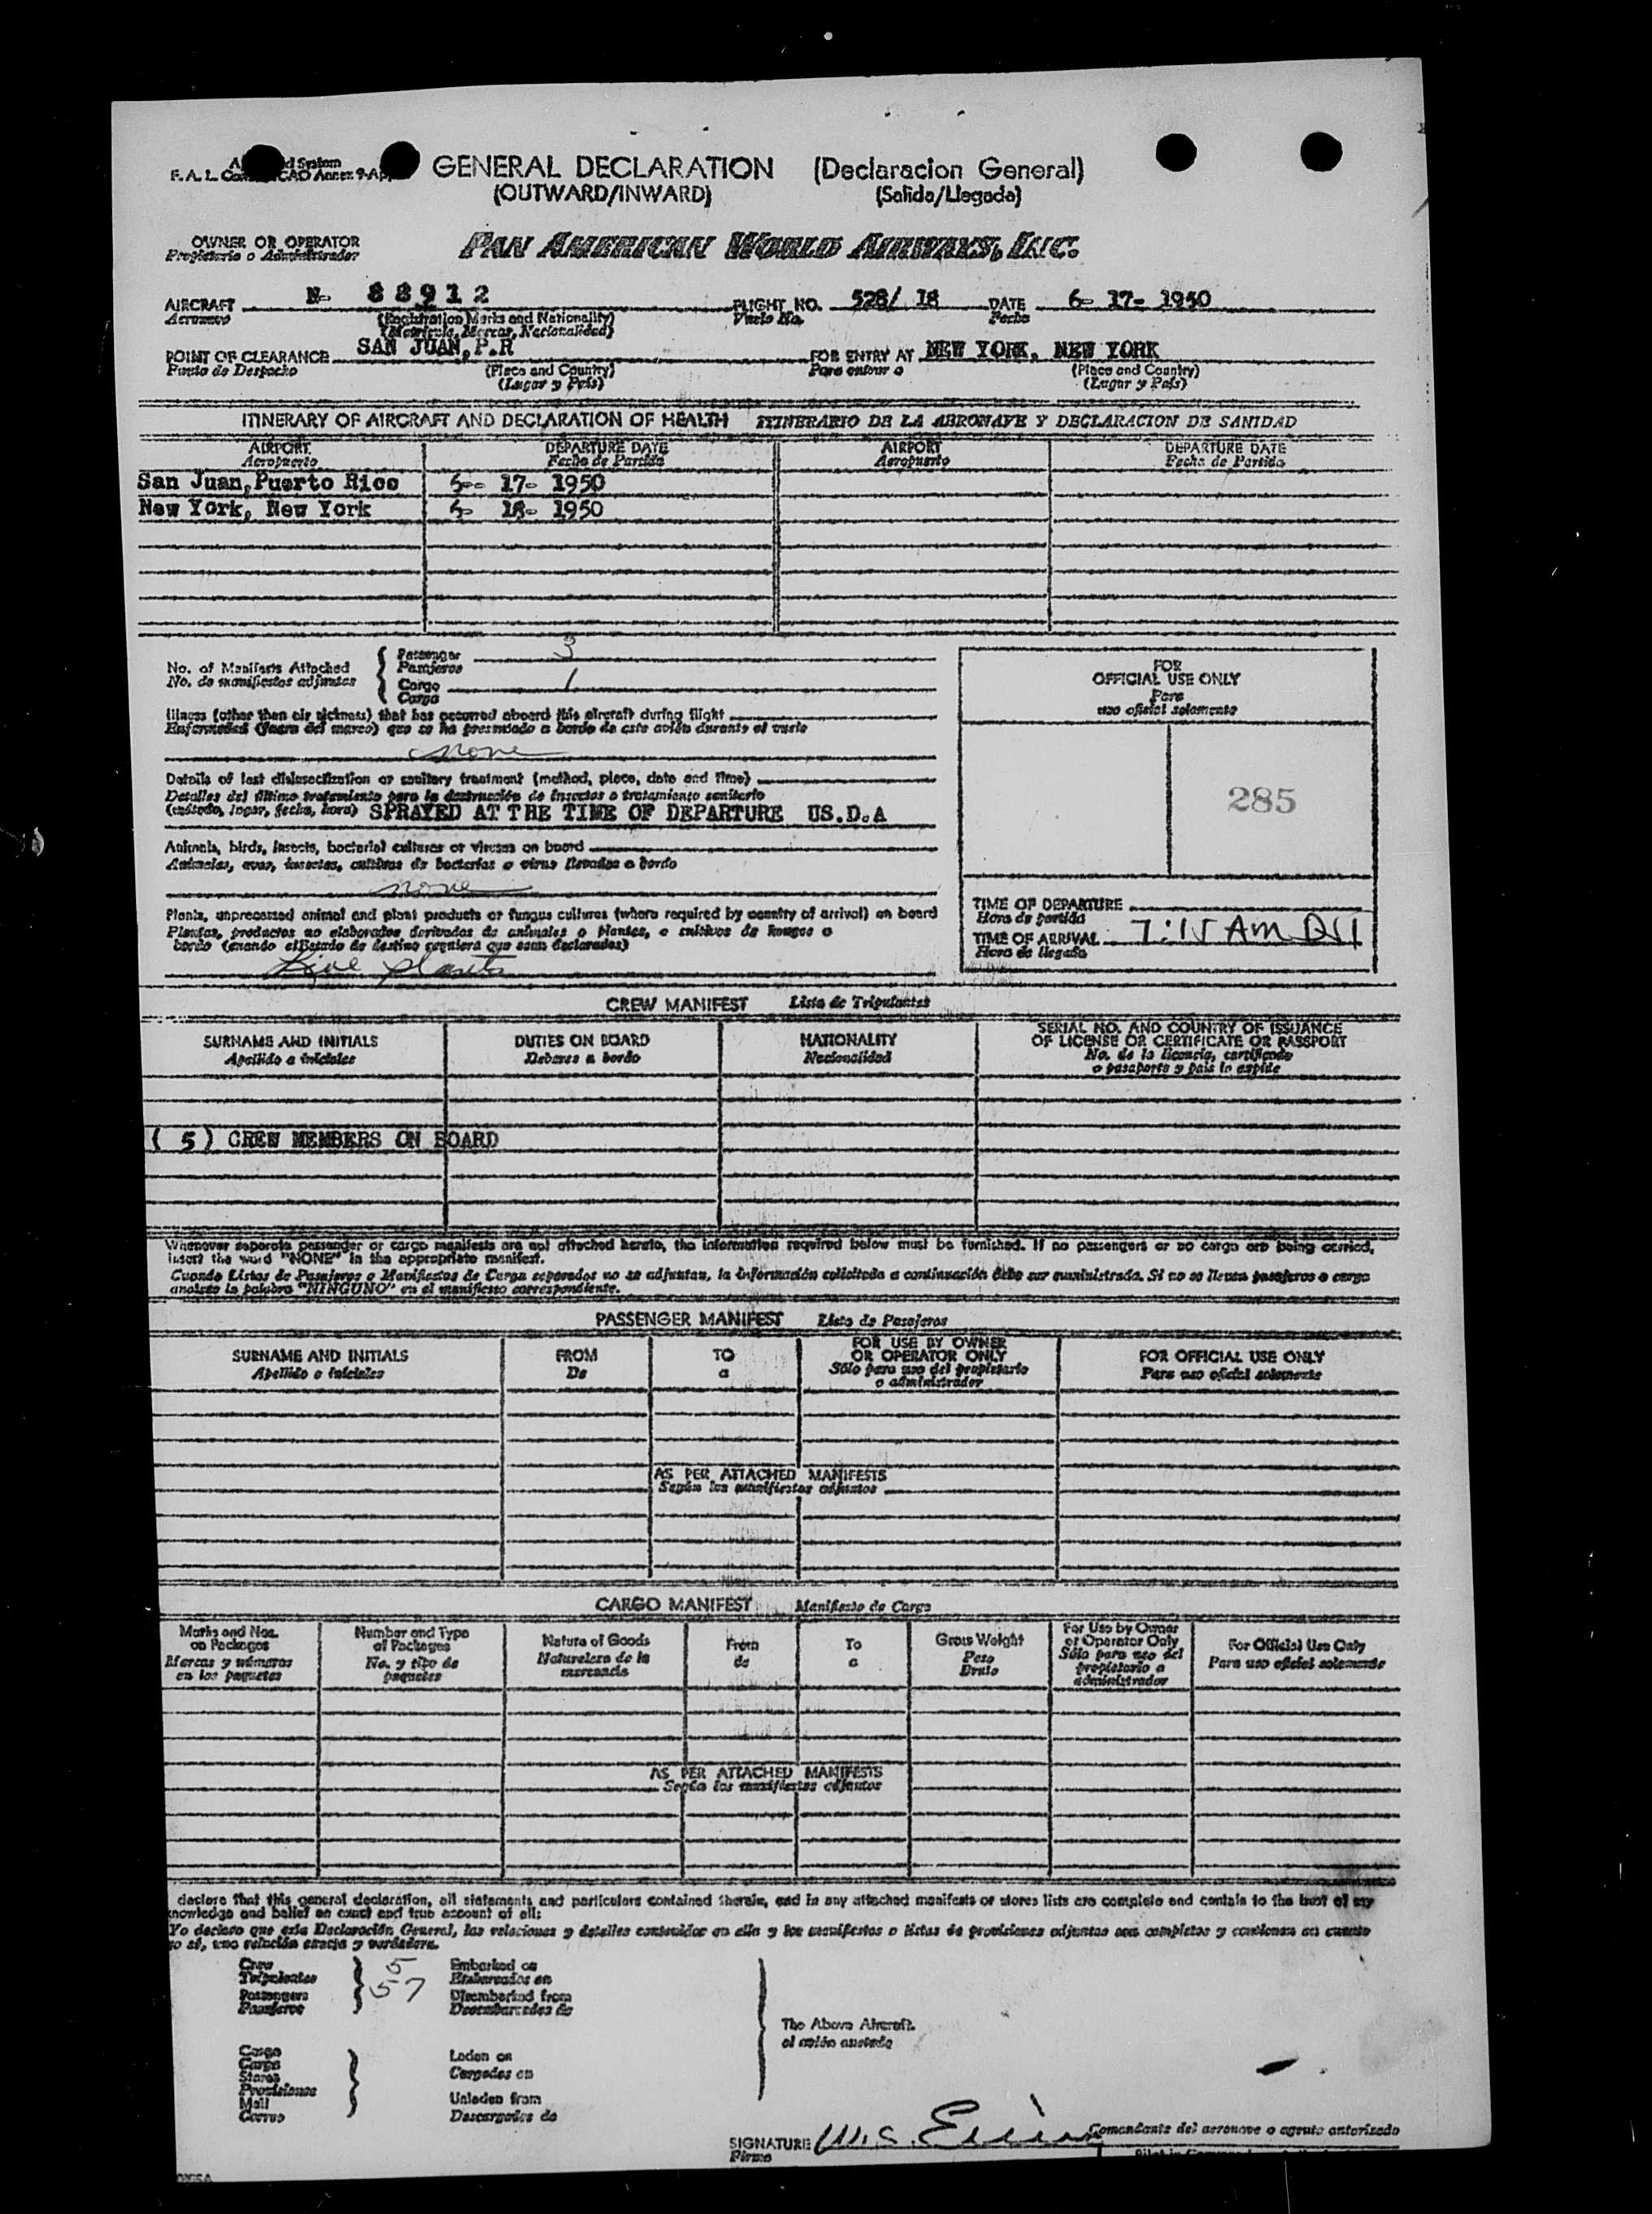 GENERAL DECLARATION (Declaracion General)
(OUTWARD/INWARD) (Salida/Llegada)
OWNER OR OPERATOR PAN AMERICAN WORLD AIRWAYS, INC.
Propietario o Administrador
AIRCRAFT N- 88912 FLIGHT NO. 528/ 18 DATE 6- 17- 1950
Aeronave (Registration Marks and Nationality) Vuelo No. Fecha
(Matricula, Marcas, Nacionalidad)
POINT OF CLEARANCE SAN JUAN, P.R FOR ENTRY AT NEW YORK, NEW YORK
Punto de Despacho (Place and Country) Para entrar a (Place and Country)
(Lugar y País) (Lugar y País)
ITINERARY OF AIRCRAFT AND DECLARATION OF HEALTH ITINERARIO DE LA AERONAVE Y DECLARACION DE SANIDAD
AIRPORT DEPARTURE DATE AIRPORT DEPARTURE DATE
Aeropuerto Fecha de Partida Aeropuerto Fecha de Partida
San Juan, Puerto Rico 6-- 17- 1950
New York, New York 6- 18- 1950
No. of Manifests Attached
No. de manifiestos adjuntos
Passenger 3
Pasajeros
Cargo 1
Carga
Illness (other than air sickness) that has occurred aboard this aircraft during flight
Enfermedad (fuera del mareo) que se ha presentado a bordo de este avión durante el vuelo
none
Details of last disinsectization or sanitary treatment (method, place, date and time)
Detalles del último tratamiento para la destrucción de insectos o tratamiento sanitario
(método, lugar, fecha, hora) SPRAYED AT THE TIME OF DEPARTURE US.D.A
Animals, birds, insects, bacterial cultures or viruses on board
Animales, aves, insectos, cultivos de bacterias o virus llevados a bordo
none
Plants, unprocessed animal and plant products or fungus cultures (where required by country of arrival) on board
Plantas, productos no elaborados derivados de animales o plantas, o cultivos de hongos a
bordo (cuando el Estado de destino requiera que sean declarados)
Live plants
FOR
OFFICIAL USE ONLY
Para
uso oficial solamente
285
TIME OF DEPARTURE
Hora de partida
TIME OF ARRIVAL 7:15 AM
Hora de llegada
CREW MANIFEST Lista de Tripulantes
SURNAME AND INITIALS DUTIES ON BOARD NATIONALITY SERIAL NO. AND COUNTRY OF ISSUANCE
OF LICENSE OR CERTIFICATE OR PASSPORT
Apellido e iniciales Deberes a bordo Nacionalidad No. de la licencia, certificado
o pasaporte y país lo expide
( 5 ) CREW MEMBERS ON BOARD
Whenever separate passenger or cargo manifests are not attached hereto, the information required below must be furnished. If no passengers or no cargo are being carried,
insert the word "NONE" in the appropriate manifest.
Cuando Listas de Pasajeros o Manifiestos de Carga separados no se adjuntan, la información solicitada a continuación debe ser suministrada. Si no se llevan pasajeros o carga
anótese la palabra "NINGUNO" en el manifiesto correspondiente.
PASSENGER MANIFEST Lista de Pasajeros
SURNAME AND INITIALS FROM TO FOR USE BY OWNER
OR OPERATOR ONLY FOR OFFICIAL USE ONLY
Apellido e iniciales De a Sólo para uso del propietario
o administrador Para uso oficial solamente
AS PER ATTACHED MANIFESTS
Según los manifiestos adjuntos
CARGO MANIFEST Manifiesto de Carga
Marks and Nos.
on Packages
Marcas y números
en los paquetes
Number and Type
of Packages
No. y tipo de
paquetes
Nature of Goods
Naturaleza de la
mercancía
From
de
To
a
Gross Weight
Peso
Bruto
For Use by Owner
or Operator Only
Sólo para uso del
propietario o
administrador
For Official Use Only
Para uso oficial solamente
AS PER ATTACHED MANIFESTS
Según los manifiestos adjuntos
declare that this general declaration, all statements and particulars contained therein, and in any attached manifests or stores lists are complete and contain to the best of my
knowledge and belief an exact and true account of all:
Yo declaro que esta Declaración General, las relaciones y detalles contenidos en ella y los manifiestos o listas de provisiones adjuntas son completas y contienen en cuanto
yo sé, una relación exacta y verdadera.
Crew 5 Embarked on
Tripulantes Embarcados en
Passengers 57 Disembarked from
Pasajeros Desembarcados de
The Above Aircraft.
el avión anotado
Cargo Laden on
Carga Cargados en
Stores
Provisiones
Mail Unladen from
Correo Descargados de
SIGNATURE
Firma
Comandante del aeronave o agente autorizado